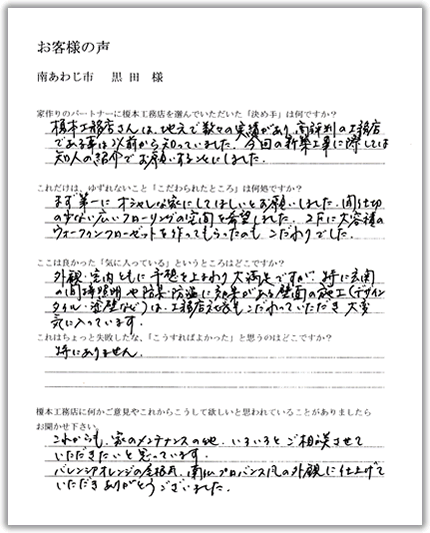 お客様の声
南あわじ市 黒田 様
家作りのパートナーに榎本工務店を選んでいただいた「決め手」は何ですか?
榎本工務店さんは、地元で数々の実績があり、高評判の工務店
である事は以前から知っていました。今回の新築工事に際しては
知人の紹介でお願いすることにしました。
これだけは、ゆずれないこと「こだわられたところ」は何処ですか?
まず第一に オシャレな家にしてほしいとお願いしました。間仕切
の少ない広いフローリングの空間を希望しました。2Fに大容積の
ウォークインクローゼットを作ってもらったのも こだわりでした。
ここは良かった「気に入っている」というところはどこですか?
外観・室内ともに予想を上まわり大満足ですが、特に玄関
の間接照明や防臭・防湿に効果がある壁面の施工(デザイン
タイル・塗壁など)は、工務店さんも こだわっていただき 大変
気に入っています。
これはちょっと失敗したな、「こうすればよかった」と思うのはどこですか?
特にありません。
榎本工務店に何かご意見やこれからこうして欲しいと思われていることがありましたら
お聞かせ下さい。
これからも、家のメンテナンスの他、いろいろと ご相談させて
いただきたいと思っています。
バレンシアオレンジの屋根瓦、南仏プロバンス風の外観に仕上げて
いただき ありがとうございました。